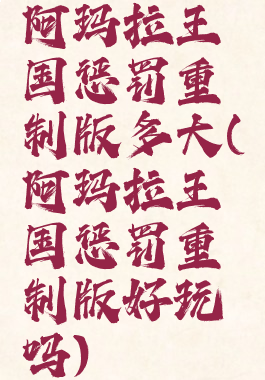 阿玛拉王
国惩罚重
制版多大(
阿玛拉王
国惩罚重
制版好玩
吗)